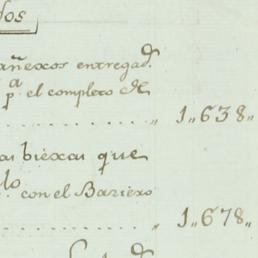 dos
añexos entregad.ᵒˢ
p.ᵃ el completo de
. . . . . . . . . . „ 1„638„
as biexas que
lo con el Barrexo
. . . . . . . . . . „ 1„678„